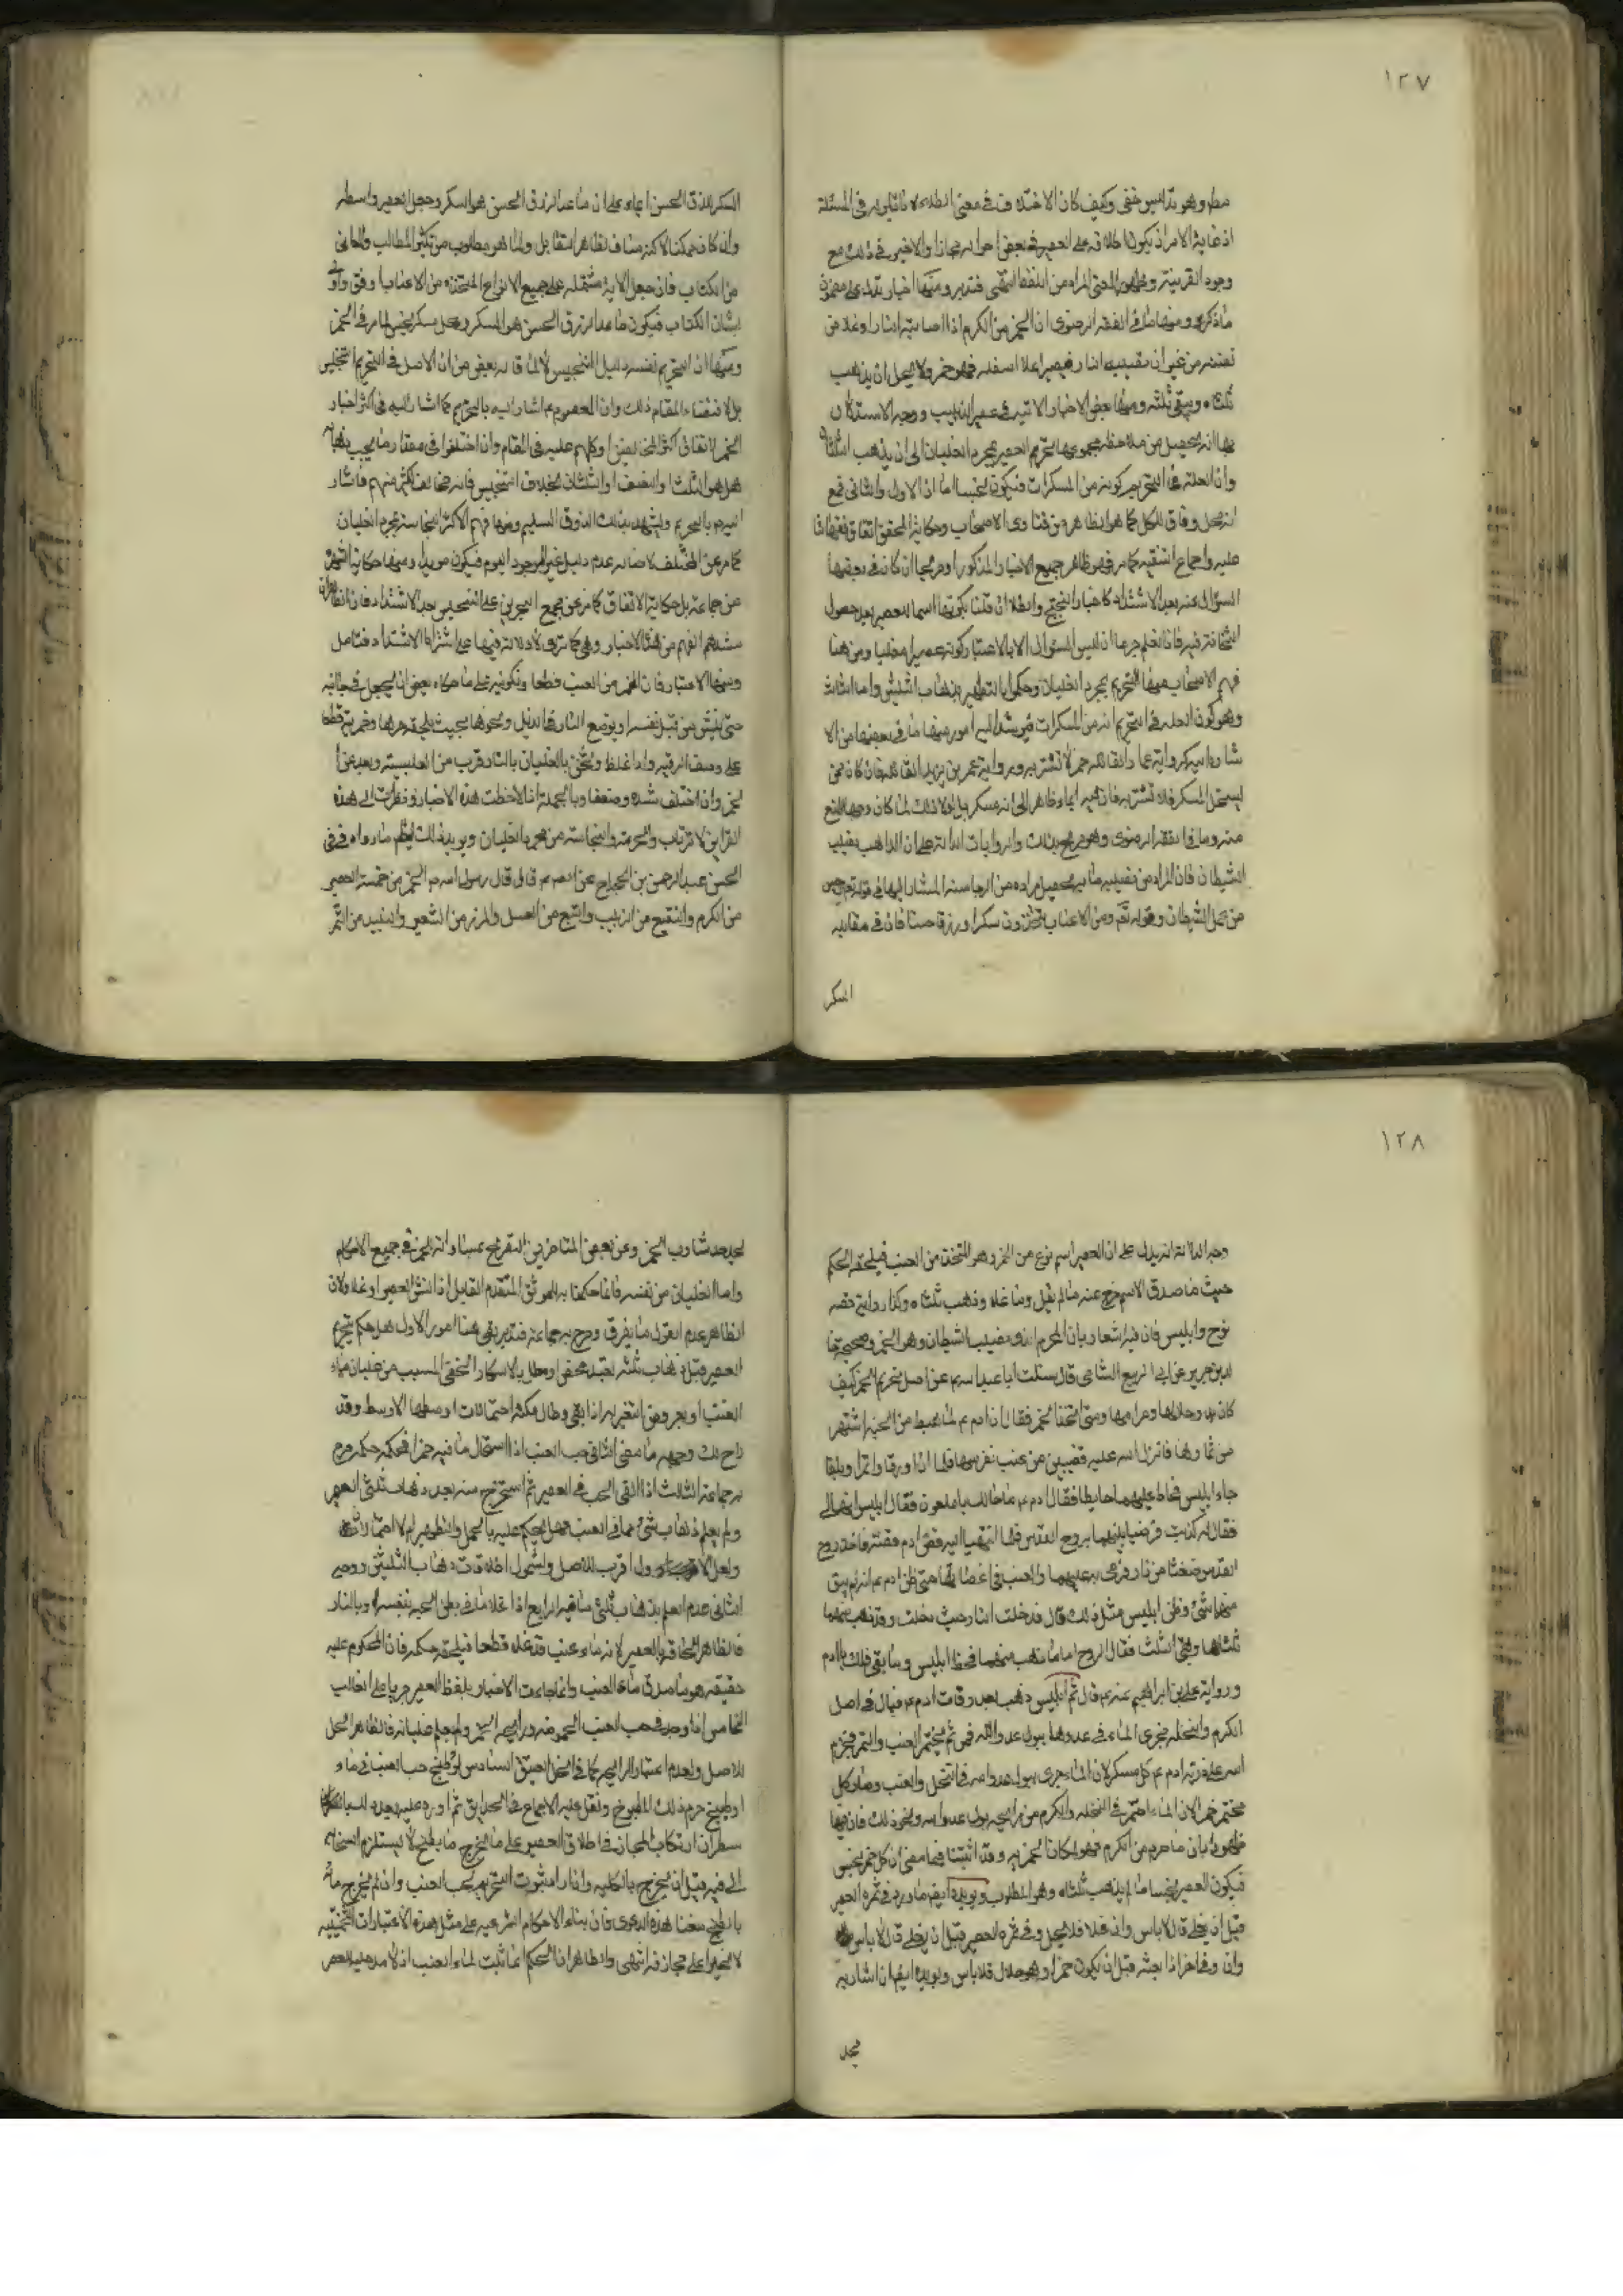 ١٢٧
وهو بذا ليس خفى وكيف كان الاختلاف فى معنى الطلاء لا تاثير له فى المسئلة
اذ غاية الامر ان يكون اطلاقه على العصير فى بعض احواله مجازا ولا ضير فى ذلك مع
وجود القرينة وظهور المعنى المراد من اللفظ انتهى فتدبر ومنها اخبار تدل على مضمون
ما ذكره ومنها ما فى الفقه الرضوى ان الخمر من الكرم اذا اصابته النار او غلا من
غير ان تصيبه النار فيصير اعلاه اسفله فهو خمر ولا يحل ان يذهب
ثلثاه ويبقى ثلثه ومنها بعض الاخبار الاتية فى عصير الزبيب ووجه الاستدلال
بها انه يحصل من ملاحظة مجموعها تحريم العصير بمجرد الغليان الى ان يذهب الثلثان
وان العلة فى التحريم كونه من المسكرات فيكون نجسا اما الاول والثانى فمع
انه محل وفاق الكل كما هو الظاهر من فتاوى الاصحاب وحكاية المحقق اتفاق فقهائنا
عليه واجماع التنقيح كما مر فهو ظاهر جميع الاخبار المذكورة
السؤال عنه بعد الاشتداد كاخبار البختج والطلا ان قلنا بكونها اسما للعصير بعد حصول
الثخانة فيه فانا نعلم جزما ان ليس السؤال الا بالاعتبار كونه عصيرا مغليا ومن هنا
فهم الاصحاب منها التحريم بمجرد الغليان وحكموا بالتطهير بذهاب الثلثين واما الثالث
وهو كون العلة فى التحريم انه من المسكرات فيرشد اليه امور منها ما فى بعضها من الا
شارة اليه كرواية عمار القائلة خمر لا تشربه ورواية عمر بن يزيد القائلة فان كان ممن
يستحل المسكر فلا تشربه فان فيه ايماء ظاهر الى انه مسكر
منه وما فى الفقه الرضوى وهو صريح بذلك والروايات الدالة على ان الذاهب نصيب
الشيطان فان المراد من نصيبه ما به يحصل مراده من الرجاسة المشار اليها فى قوله تع رجس
من عمل الشيطان وقوله تع ومن الاعناب تتخذون سكرا ورزقا حسنا فان فى مقابلة
السكر
السكر للرزق الحسن ايماء على ان ما عدا الرزق الحسن هو السكر وجعل العصير واسطة
وان كان ممكنا الا انه مناف لظاهر التقابل ولما هو مطلوب من تكثير المطالب والمعانى
من الكتاب فان جعل الاية مشتملة على جميع الانواع المتخذة من الاعناب اوفق واولى
بشان الكتاب فيكون ما عدا الرزق الحسن هو المسكر وكل مسكر نجس لما مر فى الخمر
ومنها ان التحريم نفسه دليل التنجيس لا لما قاله بعض من ان الاصل فى التحريم التنجيس
بل لاقتضاء المقام ذلك وان المعصوم ع اشار اليه بالتحريم كما اشار اليه فى اكثر اخبار
الخمر
هل هو الثلث او النصف او الثلثان بخلاف التنجيس فانه خالف اكثر منهم فاشار
اليهم بالتحريم ويشهد بذلك الذوق السليم ومنها فهم الاكثر النجاسة بمجرد الغليان
كما مر عن المختلف لاصالة عدم دليل غير الموجود اليوم فيكون مؤيدا ومنها حكاية الشهرة
عن جماعة بل حكاية الاتفاق كما مر عن مجمع البحرين على التنجيس بعد الاشتداد فان الظاهر ان
منشاهم الفهم من هذه الاخبار وهى كما ترى لا دلالة فيها على اشتراط الاشتداد فتامل
ومنها الاعتبار فان الخمر من العنب قطعا وتكونه على ما حكاه بعض ان يجعل فى خابية
حتى ينش من قبل نفسه
لخمر وان اختلف شدة وضعفا وبالجملة اذا لاحظت هذه الاخبار ونظرت الى هذه
القراين لا ترتاب والحرمة والنجاسة من مجرد الغليان ويؤيد ذلك ايضا ما رواه فى فى
الحسن عبد الرحمن بن الحجاج عن الصم قال قال رسول الله ص الخمر من خمسة العصير
من الكرم والنقيع من الزبيب والبتع من العسل والمزر من الشعير والنبيذ من التمر
١٢٨
وجه الدلالة انه يدل على ان العصير اسم نوع من الخمر وهو المتخذ من العنب فيلحقه الحكم
حيث ما صدق الاسم خرج عنه ما لم يغل وما غلا وذهب ثلثاه وكذا رواية قصة
نوح وابليس فان فيه اشعار بان المحرم الذى نصيب الشيطان وهو الخمر وصحيحة خا
لد بن جرير عن ابى الربيع الشامى قال سئلت ابا عبد الله ع عن اصل تحريم الخمر كيف
كان بدو حلالها وحرامها ومتى اتخذ الخمر فقال ان ادم ع لما هبط من الجنة اشتهى
من ثمارها فانزل الله عليه قضيبين من عنب فغرسهما فلما ان اورقا واثمرا وبلغا
جاء ابليس فحاط عليهما حايطا فقال ادم ع ما حالك يا ملعون فقال ابليس انهما لى
فقال له كذبت فرضيا بينهما بروح القدس فلما انتهيا اليه فقص ادم قصته فاخذ روح
القدس ضغثا من نار فرمى به عليهما والعنب فى اغصانها حتى ظن ادم ع انه لم يبق
منهما شئ وظن ابليس مثل ذلك قال فدخلت النار حيث دخلت وقد ذهب منهما
ثلثاها وبقى الثلث فقال الروح اما ما ذهب منهما فحظ ابليس وما بقى فلك يا ادم
ورواية على بن ابراهيم عنه ع قال ثم ابليس ذهب بعد وفات ادم ع فبال فى اصل
الكرم والنخلة فجرى الماء فى عودهما ببول عدو الله فمن ثم يختمر العنب والتمر فحرم
الله على ذرية ادم ع كل مسكر لان الماء جرى ببول عدو الله فى النخل والعنب وصار كل
مختمر خمرا لان الماء اختمر فى النخلة والكرم من رايحة بول عدو الله ونحو ذلك فان فيها
ظهور بان ما حرم من الكرم فهو لمكان تخمره وقد اثبتنا فيما مضى ان كل خمر نجس
فيكون العصير نجسا ما لم يذهب ثلثاه وهو المطلوب ويؤيده ايضا ما ورد فى ثمرة العصير
قبل ان يغلى قال لا باس وان غلا فلا يحل وفى ثمرة العصير قبل ان يغلى قال لا باس
وان وفى اخر اذا بعته قبل ان يكون خمرا وهو حلال فلا باس ويؤيده ايضا ان شاربه
يحد
يحد حد شارب الخمر وعن بعض المتاخرين التصريح بمساواته الخمر فى جميع الاحكام
واما الغليان من نفسه فانما حكمنا به للموثق المتقدم القايل اذا نش العصير او غلا ولان
الظاهر عدم القول بالفرق وصرح به جماعة فتدبر بقى هنا امور الاول هل حكم تحريم
العصير قبل ذهاب ثلثيه تعبد محض او معلل بالاسكار الخفى المسبب من غليان ماء
العنب او بعروض التغير له اذا بقى وطال مكثه احتمالات اوسطها الاوسط وقد
لاح لك وجهه مما مضى الثانى حب العنب اذا استحال ما فيه خمرا فحكمه حكمه صرح
به جماعة الثالث اذا القى الحب فى العصير ثم استخرج منه بعد ذهاب ثلثى العصير
ولم يعلم ذهاب شئ مما فى العنب فهل يحكم عليه بالحل والتطهير ام لا احتمالات
ولعل الاول اقرب للاصل وشمول اطلاقات ذهاب الثلثين ووجه
الثانى عدم العلم بذهاب ثلثى ما فيه الرابع اذا غلا ما فى بطن الحبة بنفسه او بالنار
فالظاهر الحاقه بالعصير لانه ماء عنب قد غلا قطعا فيلحقه حكمه فان المحكوم عليه
حقيقة هو ما صدق ماء العنب وانما جاءت الاخبار بلفظ العصير جريا على الغالب
الخامس اذا وجد فى حب العنب الحموضة ورايحة الخمر ولم يعلم غليانه فالظاهر الحل
للاصل ولعدم اعتبار الرايحة كما فى الخل العتيق السادس لو طبخ حب العنب فى ماء
او طبيخ حرم ذلك المطبوخ ونقل عليه الاجماع فى الحدايق ثم اورد عليه بعد
سطر ان ارتكاب المجاز فى اطلاق العصير على ما يخرج مما يطبخ لا يستلزم
فيه قبل ان يخرج بالكلية وان ارادوا ثبوت التحريم لحب العنب وان لم يخرج مائه
بالطبخ منعنا هذه الدعوى فان بناء الاحكام الشرعية على مثل هذه الاعتبارات التخمينية
لا يخلو عن مجازفة انتهى والظاهر ان الحكم انما ثبت لماء العنب اذ لا مدخلية للعصر